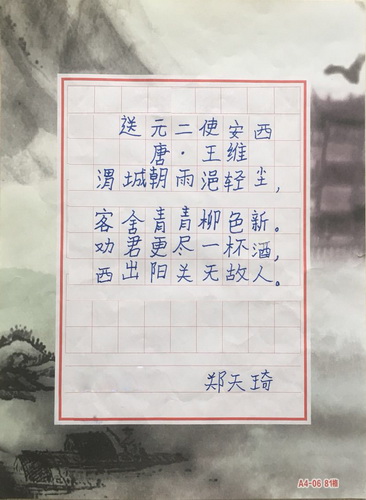 送元二使安西
唐·王维
渭城朝雨浥轻尘，
客舍青青柳色新。
劝君更尽一杯酒，
西出阳关无故人。
郑天琦
A4-06 81格